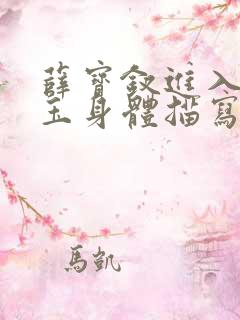 薛寶釵進入
玉身體描寫
馬凱